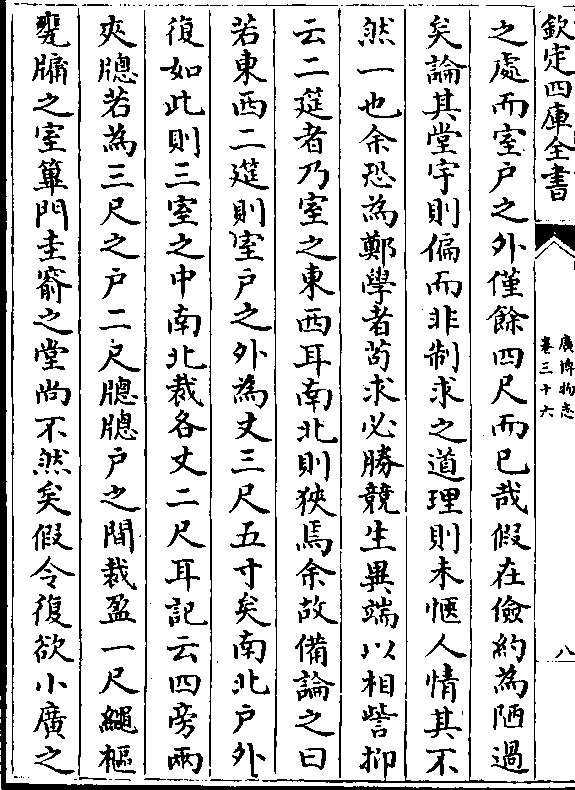 欽定四庫全書
廣博物志
卷三十六
八
之處而室戶之外僅餘四尺而已哉假在儉約為陋過
矣論其堂宇則偏而非制求之道理則未愜人情其不
然一也余恐為鄭學者茍求必勝競生異端以相訾抑
云二筵者乃室之東西耳南北則狹焉余故備論之曰
若東西二筵則室戶之外為丈三尺五寸矣南北戶外
復如此則三室之中南北裁各丈二尺耳記云四旁兩
夾牕若為三尺之戶二尺牕牕戶之間裁盈一尺繩樞
甕牖之室篳門圭窬之堂尚不然矣假令復欲小廣之